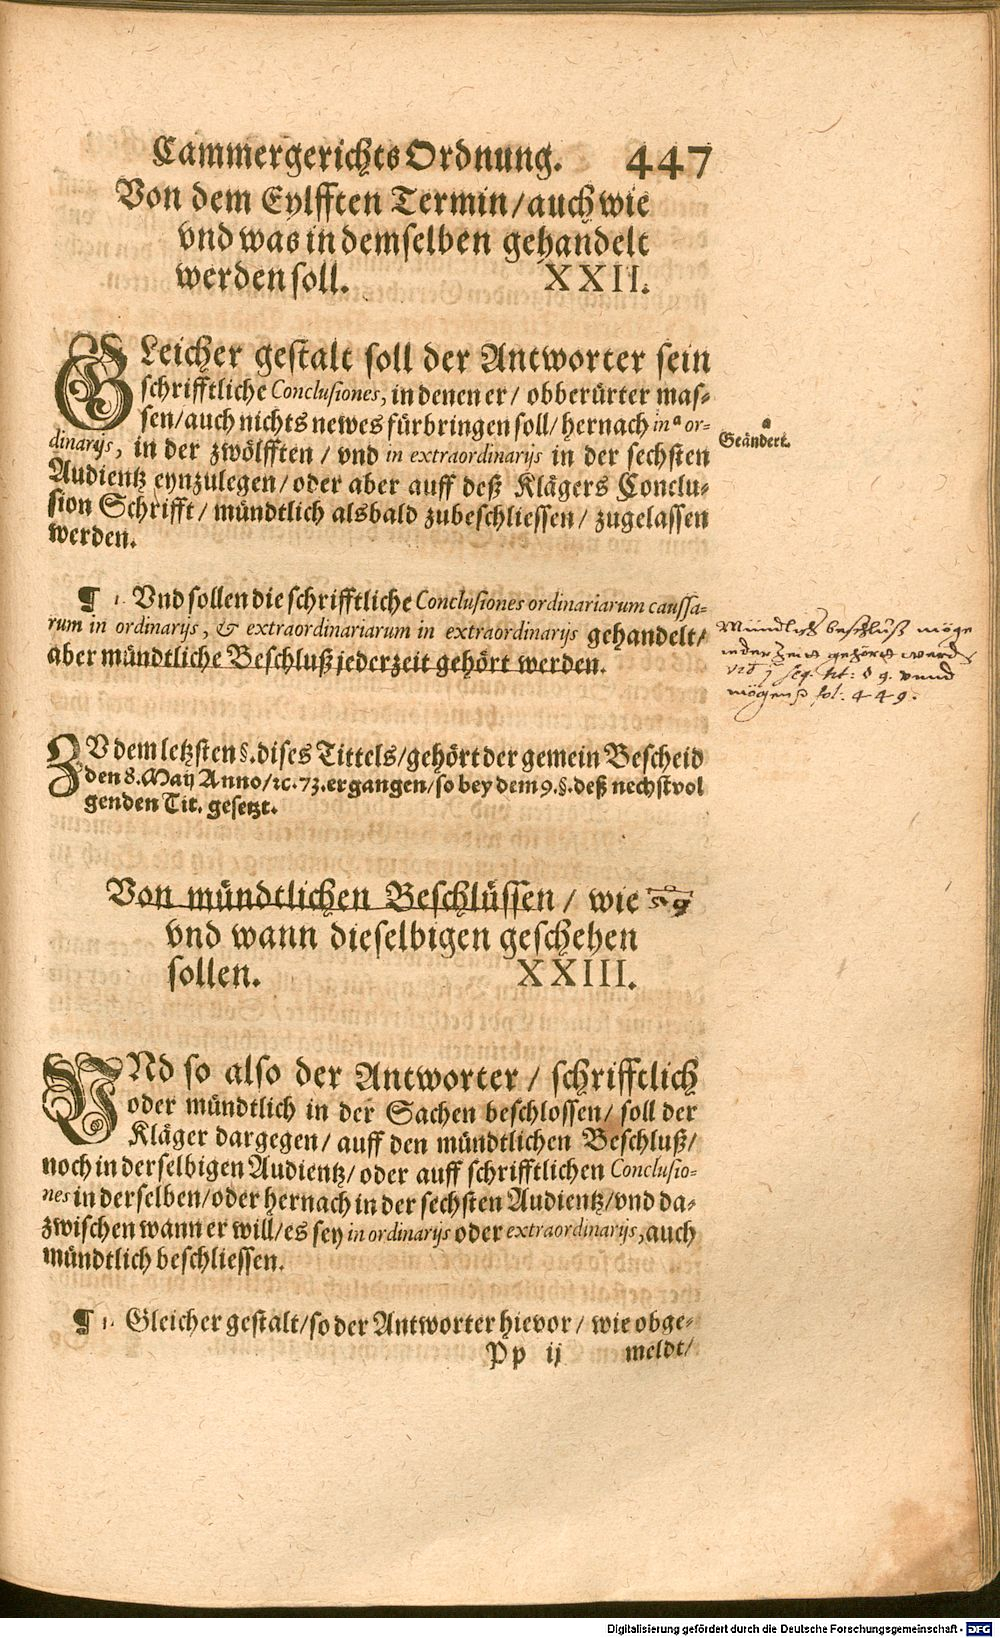 Cammergerichts Ordnung. 447
Von dem Eylfften Termin / auch wie
vnd was in demselben gehandelt
werden soll. XXII.
GLeicher gestalt soll der Antworter sein
schrifftliche Conclusiones, in denen er / obberürter mas-
sen / auch nichts newes fürbringen soll / hernach in ª or-
dinarijs, in der zwölfften / vnd in extraordinarijs in der sechsten
Audientz eynzulegen / oder aber auff deß Klägers Conclu-
sion Schrifft / mündtlich alsbald zubeschliessen / zugelassen
werden.
a
Geändert.
¶ 1. Vnd sollen die schrifftliche Conclusiones ordinariarum caussa-
rum in ordinarijs, & extraordinariarum in extraordinarijs gehandelt /
aber mündtliche Beschluß jederzeit gehört werden.
Mündlich beschluß möge
jeder Zeit gehört werd
seq. tit: 59. vnnd
fol. 449.
ZV dem letzsten §. dises Tittels / gehört der gemein Bescheid
den 8. Maij Anno / ꝛc. 73. ergangen / so bey dem 9. §. deß nechstvol
genden Tit. gesetzt.
Von mündtlichen Beschlüssen / wie 59
vnd wann dieselbigen geschehen
sollen. XXIII.
VNd so also der Antworter / schrifftlich
oder mündtlich in der Sachen beschlossen / soll der
Kläger dargegen / auff den mündtlichen Beschluß /
noch in derselbigen Audientz / oder auff schrifftlichen Conclusio-
nes in derselben / oder hernach in der sechsten Audientz / vnd da-
zwischen wann er will / es sey in ordinarijs oder extraordinarijs, auch
mündtlich beschliessen.
¶ 1. Gleicher gestalt / so der Antworter hievor / wie obge-
Pp ij meldt /
Digitalisierung gefördert durch die Deutsche Forschungsgemeinschaft - DFG